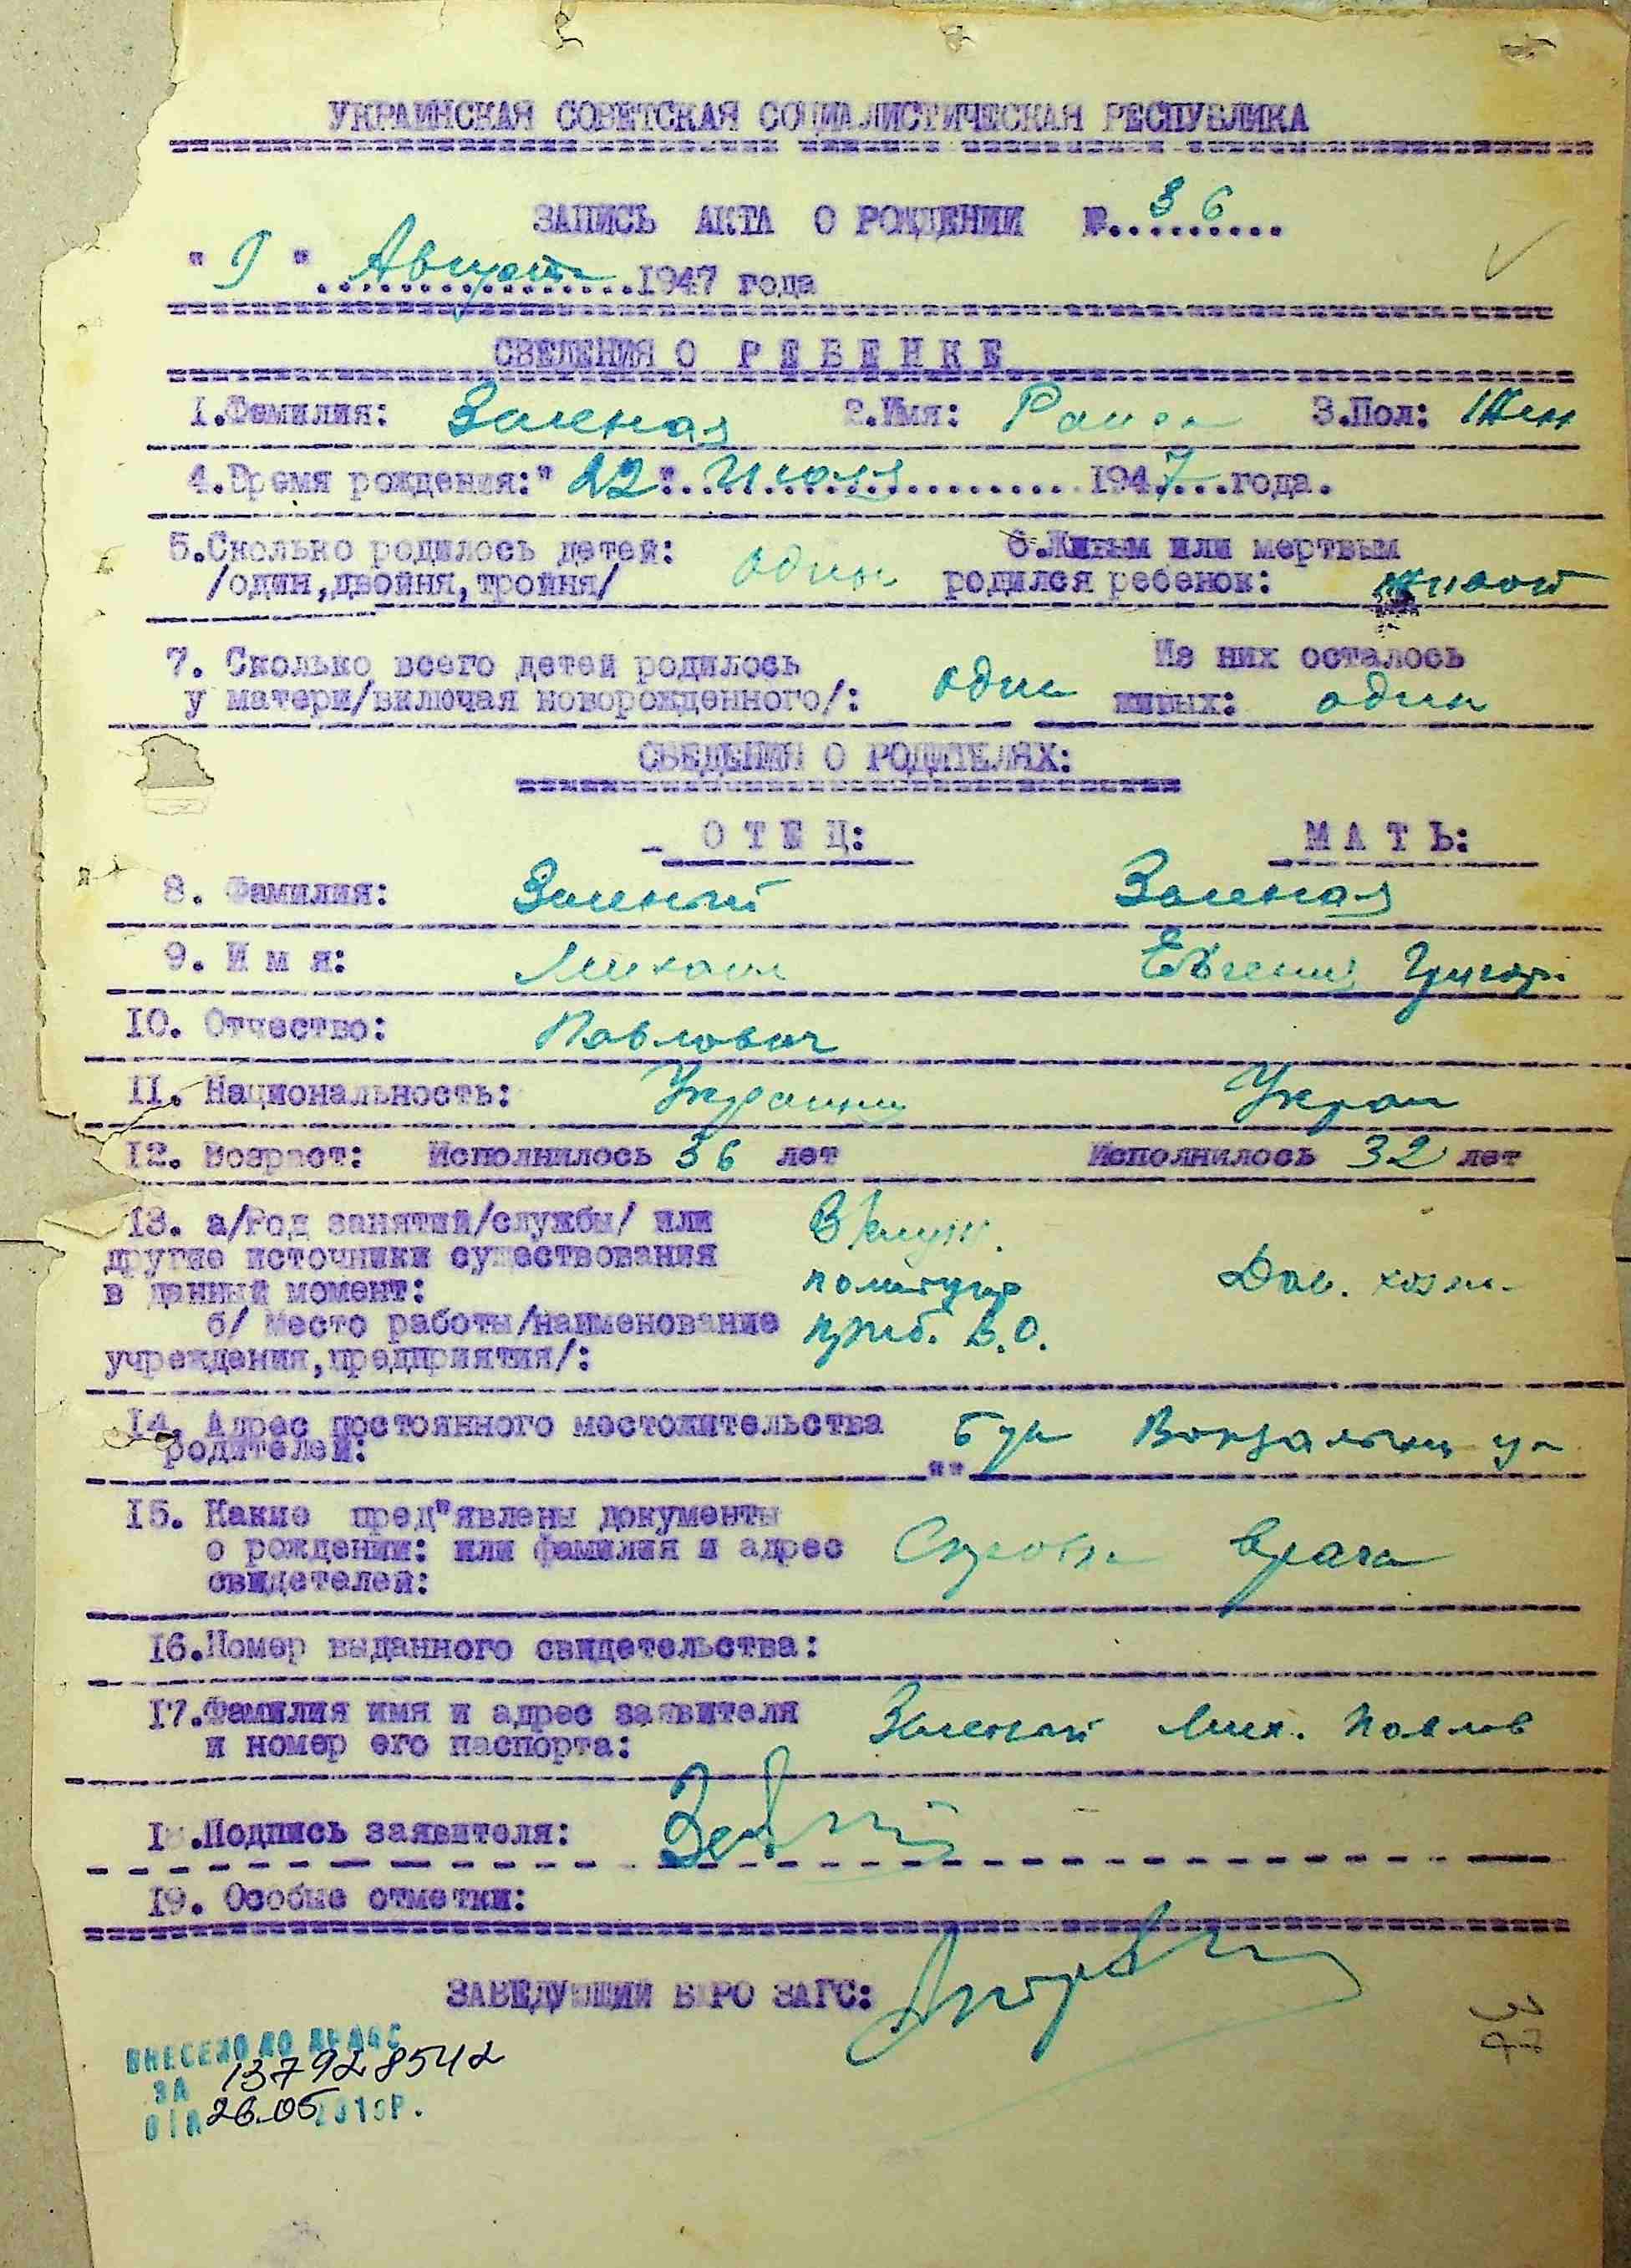 УКРАИНСКАЯ СОВЕТСКАЯ СОЦИАЛИСТИЧЕСКАЯ РЕСПУБЛИКА
ЗАПИСЬ АКТА О РОЖДЕНИИ №..36.......
"I" Августа 1947 года
СВЕДЕНИЯ О РЕБЕНКЕ
1.Фамилия: Зеленая 2.Имя: Раиса 3.Пол: Жен
4.Время рождения:"22" Июля 1947 года.
5.Сколько родилось детей: 6.Живым или мертвым
/один,двойня,тройня/ один родился ребенок: живой
7. Сколько всего детей родилось Из них осталось
у матери/включая новорожденного/: один живых: один
СВЕДЕНИЯ О РОДИТЕЛЯХ:
ОТЕЦ: МАТЬ:
8. Фамилия: Зеленый Зеленая
9. Имя: Михаил Евгения Григор.
10. Отчество: Павлович
11. Национальность: Украинец Украи
12. Возраст: Исполнилось 36 лет Исполнилось 32 лет
13. а/Род занятий/службы/ или
другие источники существования
в данный момент: политупр Дом. хозя.
б/ место работы/наименование приб. В.О.
учреждения,предприятия/:
14. Адрес постоянного местожительства
родителей: Вокзальная ул
15. Какие пред"явлены документы
о рождении: или фамилия и адрес Справка врача
свидетелей:
16.Номер выданного свидетельства:
17.Фамилия имя и адрес заявителя Зеленый Мих. Павлов
и номер его паспорта:
18.Подпись заявителя:
19. Особые отметки:
ЗАВЕДУЮЩИЙ БЮРО ЗАГС:
ВНЕСЕНО ДО ДРАЦС
ЗА 137928542
ВІД 26.05 2019Р.